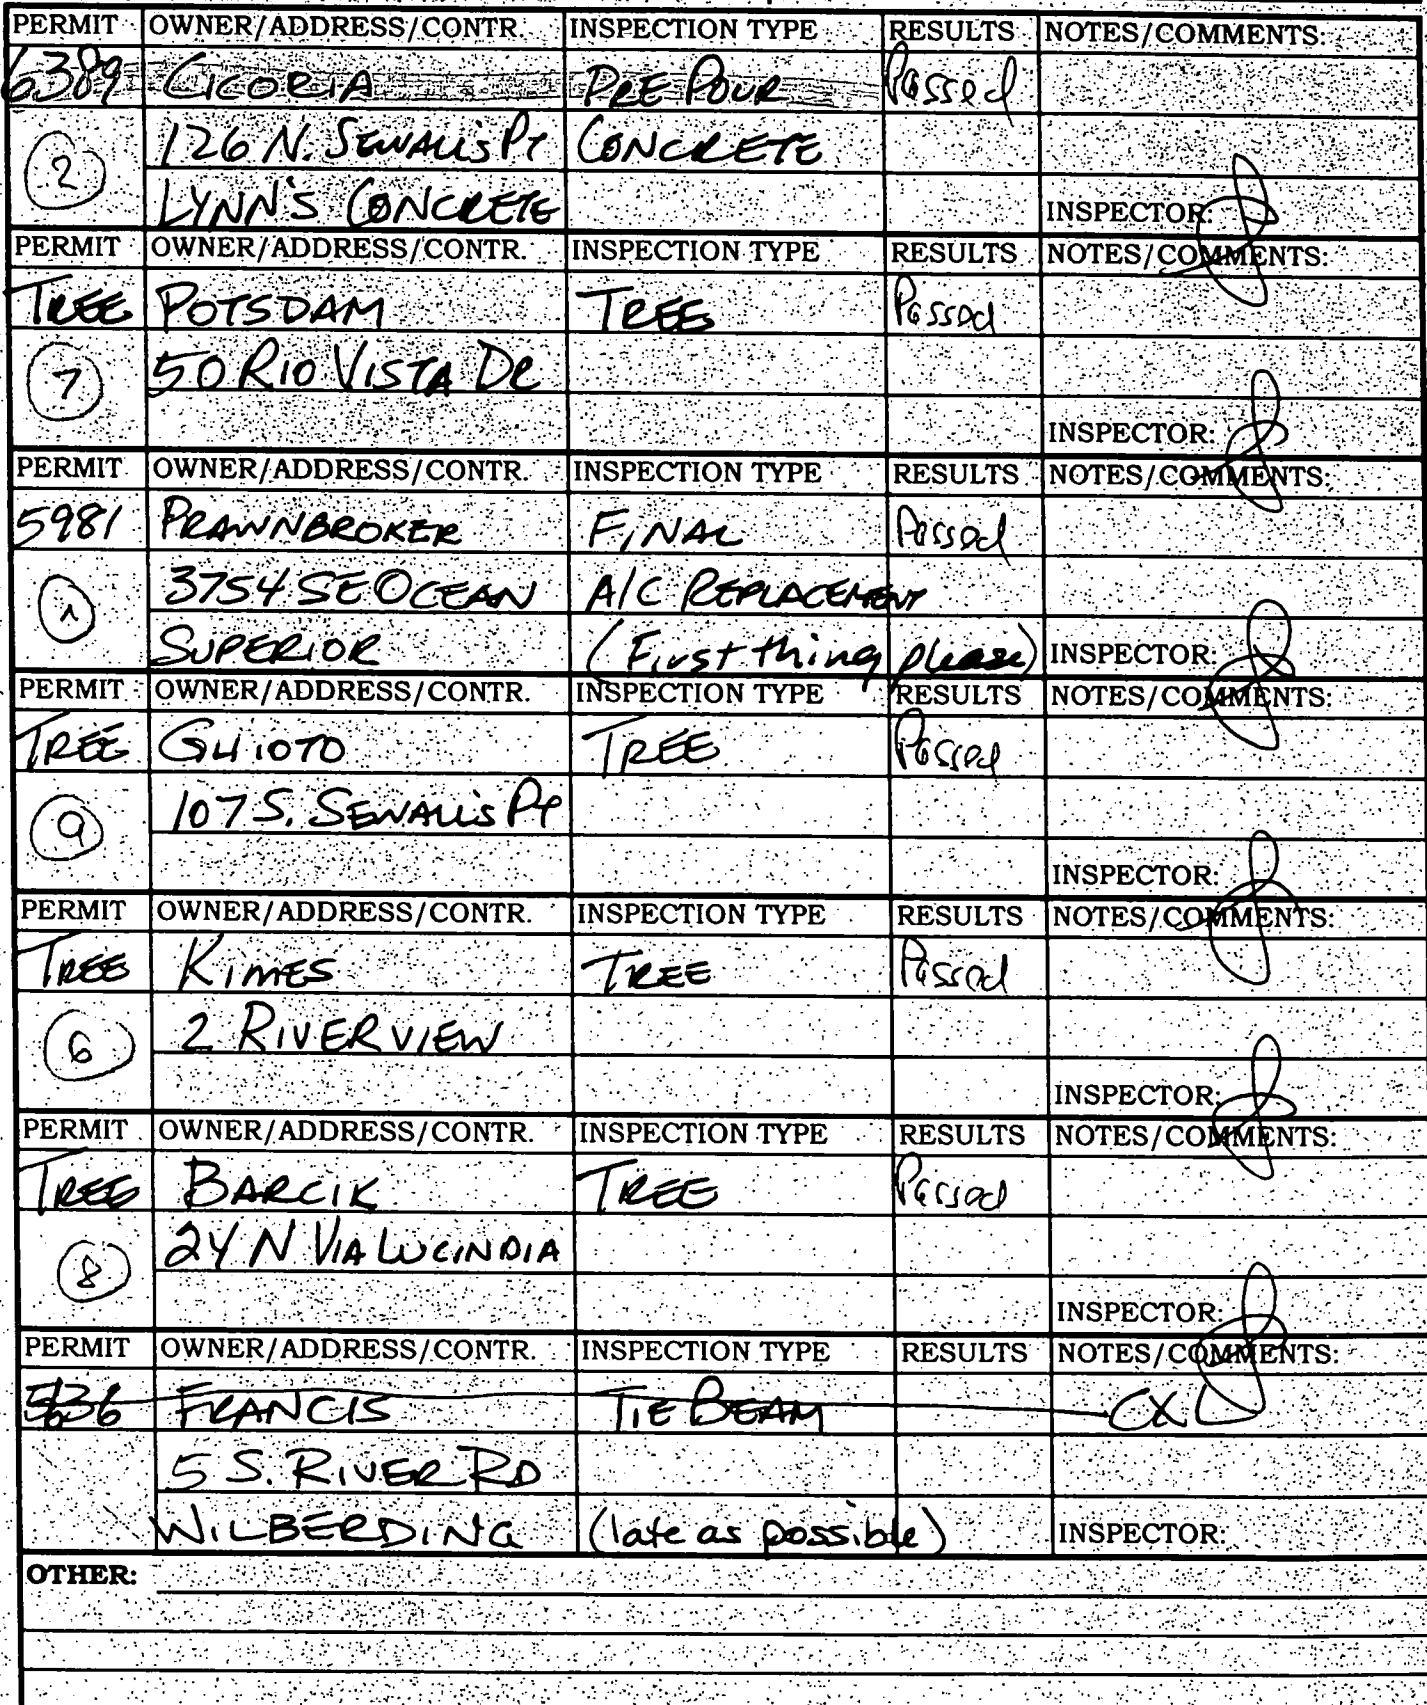 PERMIT OWNER/ADDRESS/CONTR. INSPECTION TYPE RESULTS NOTES/COMMENTS:
6389 CICORIA PRE POUR Passed
126 N. SEWALL'S PT CONCRETE
2
LYNN'S CONCRETE INSPECTOR:
PERMIT OWNER/ADDRESS/CONTR. INSPECTION TYPE RESULTS NOTES/COMMENTS:
TREE POTSDAM TREE Passed
7 50 RIO VISTA DR
INSPECTOR:
PERMIT OWNER/ADDRESS/CONTR. INSPECTION TYPE RESULTS NOTES/COMMENTS:
5981 PRAWNBROKER FINAL Passed
1 3754 SE OCEAN A/C REPLACEMENT
SUPERIOR (First thing please) INSPECTOR:
PERMIT OWNER/ADDRESS/CONTR. INSPECTION TYPE RESULTS NOTES/COMMENTS:
TREE GHIOTO TREE Passed
9 107 S. SEWALL'S PT
INSPECTOR:
PERMIT OWNER/ADDRESS/CONTR. INSPECTION TYPE RESULTS NOTES/COMMENTS:
TREE KIMES TREE Passed
6 2 RIVERVIEW
INSPECTOR:
PERMIT OWNER/ADDRESS/CONTR. INSPECTION TYPE RESULTS NOTES/COMMENTS:
TREE BARCIK TREE Passed
8 24 N VIA LUCINDIA
INSPECTOR:
PERMIT OWNER/ADDRESS/CONTR. INSPECTION TYPE RESULTS NOTES/COMMENTS:
5636 FRANCIS TIE BEAM CXL
5 S. RIVER RD
WILBERDING (late as possible) INSPECTOR:
OTHER: